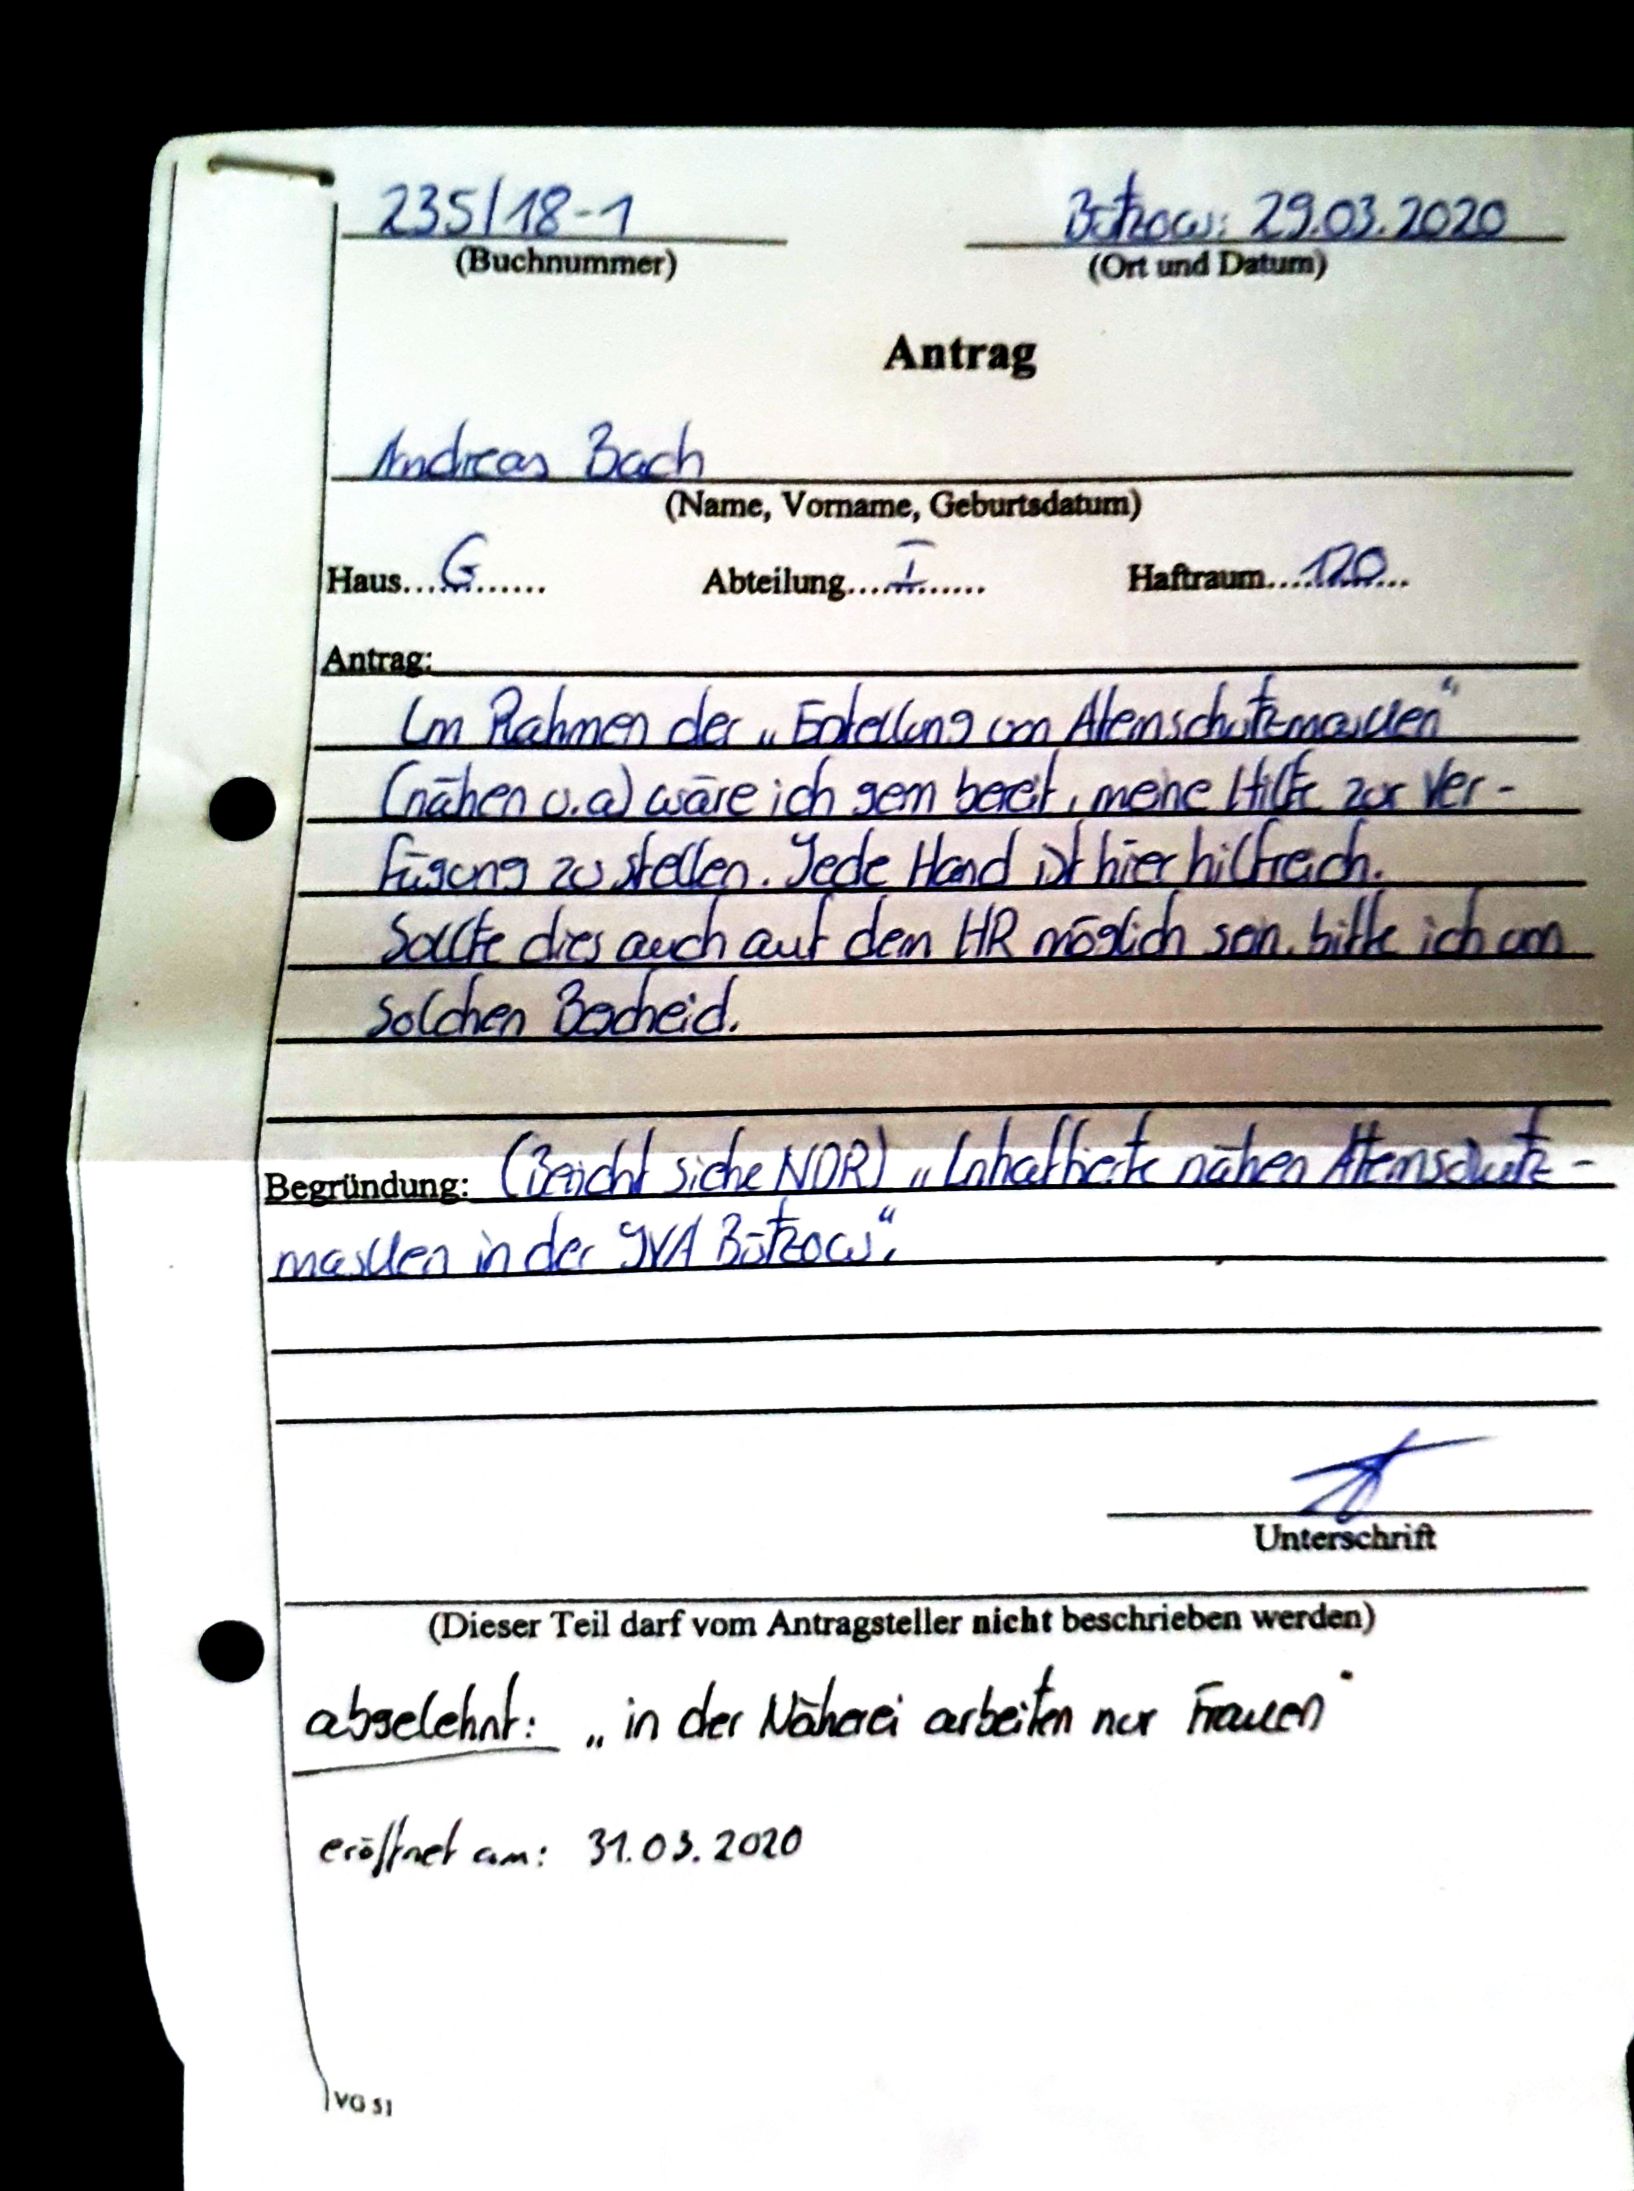 235/18-1
Bützow: 29.03.2020
(Buchnummer)
(Ort und Datum)
Antrag
Andreas Bach
(Name, Vorname, Geburtsdatum)
Haus...G....... Abteilung....I....... Haftraum....120....
Antrag:
Im Rahmen der „ von Atemschutzmasken“
(nähen u.a) wäre ich gern bereit, meine Hilfe zur Ver-
fügung zu stellen. Jede Hand ist hier hilfreich.
Sollte dies auch auf dem HR möglich sein, bitte ich um
solchen Bescheid.
Begründung: (Bericht siehe NDR) „Inhaftierte nähen Atemschutz-
masken in der JVA Bützow“.
Unterschrift
(Dieser Teil darf vom Antragsteller nicht beschrieben werden)
abgelehnt: „in der Näherei arbeiten nur Frauen“
eröffnet am: 31.03.2020
VG 51